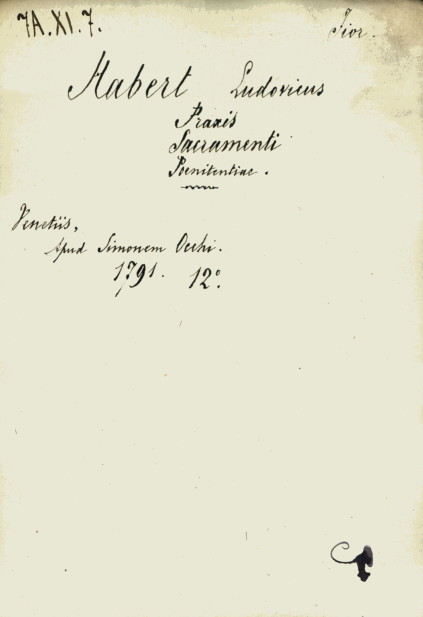 7A.XI.7. Fior.
Habert Ludovicus
Praxis
Sacramenti
Poenitentiae.
Venetiis,
Apud Simonem Occhi.
1791. 12°.